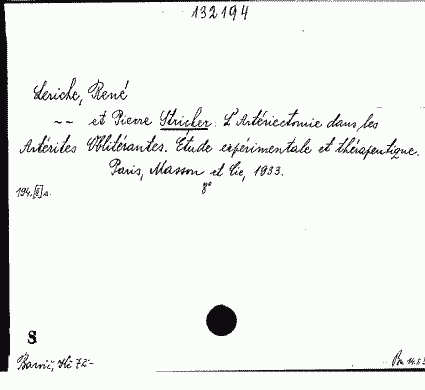 132194
Leriche, René
-- et Pierre Stricker: L'Artériectomie dans les
Artérites Oblitérantes. Étude expérimentale et thérapeutique.
Paris, Masson et Cie, 1933.
8°
194,[II]s.
S